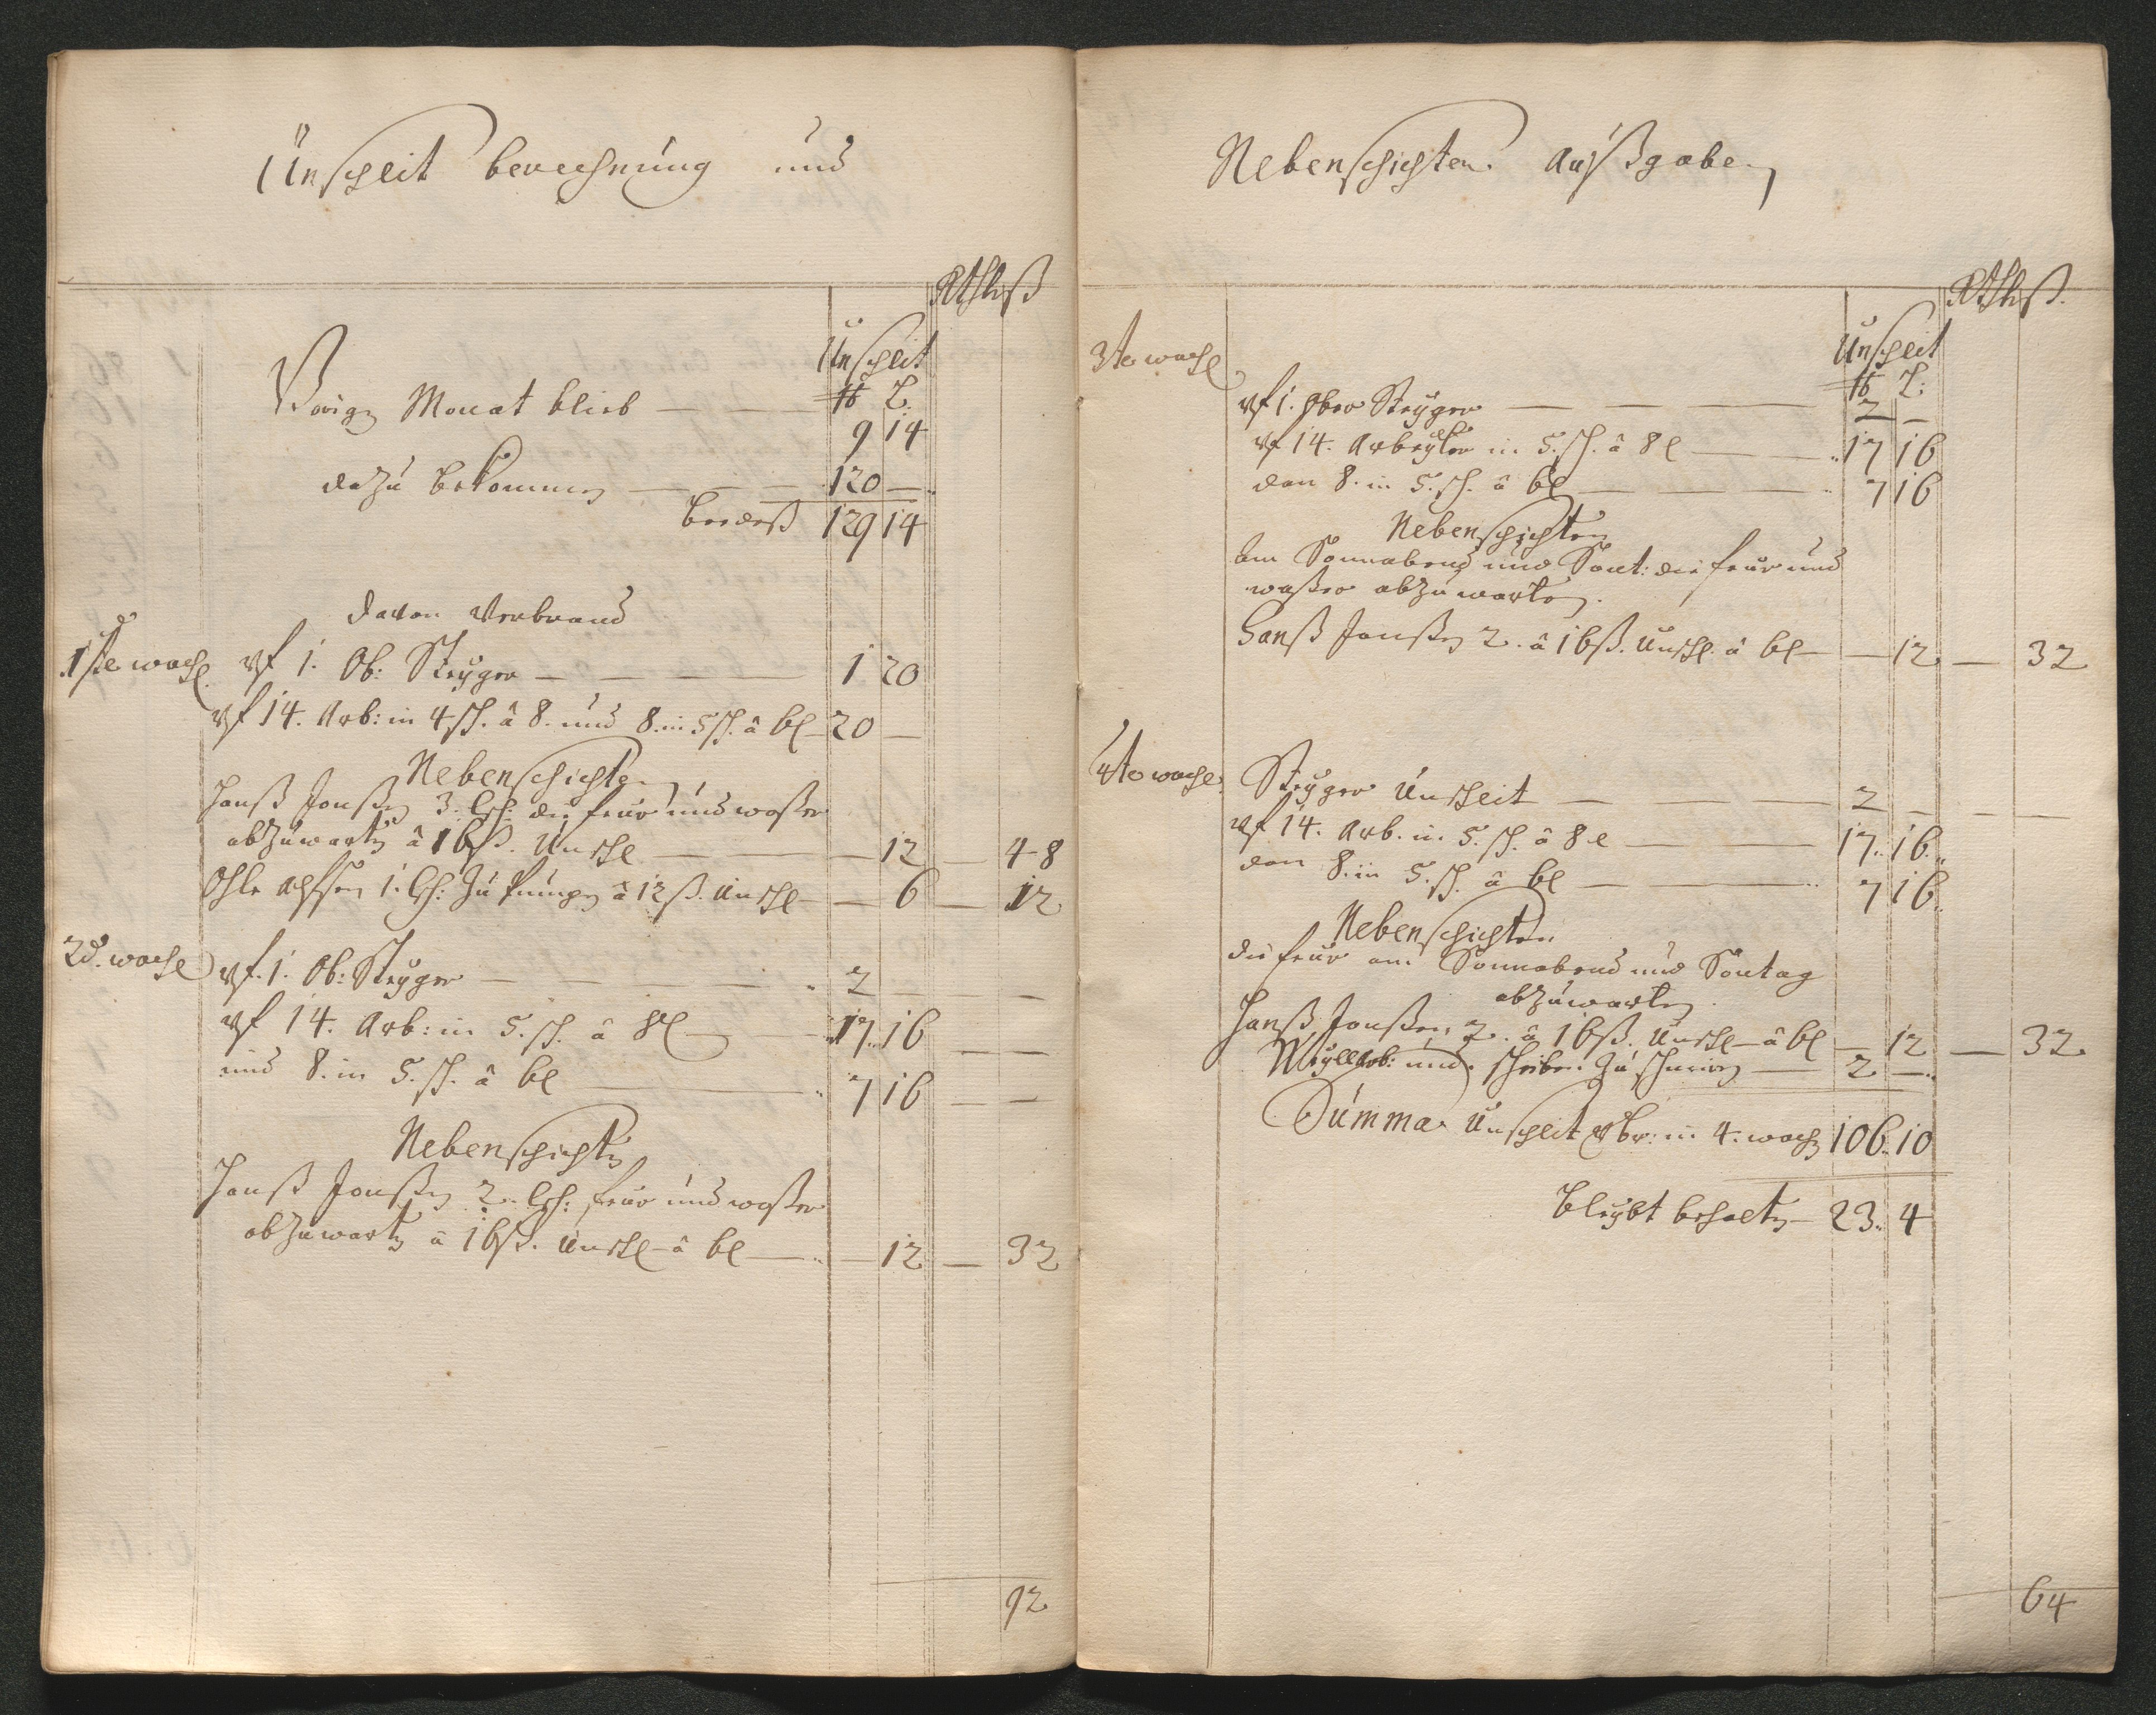 Unschlit berechnung und
Rthl ß
Unschlit
Vorigen Monat blieb — — ℔ L.
9 14
dazu bekommen — — 120 —
beedeß 129 14
Davon Verbrand
1ste woche vf 1. Ob: Steyger — — — 1 20
vf 14. Arb: in 4 sch. â 8. und 8. in 5 sch. â 6 l 20 —
Nebenschichten
Hanß Jonßen 3. sch: die feur und waßer
abzuwarten â 16 ß. Unschl — — 12 — 48
Ohle 1. sch: zu pumpen â 12 ß. Unschl — — 6 — 12
2d. woche vf. 1. Ob: Steyger — — — 2 — —
vf 14. Arb: in 5. sch. â 8 l — 17 16 — —
und 8. in 5. sch. â 6 l — 7 16 — —
Nebenschichten
Hanß Jonßen 2. sch: feur und waßer
abzuwarten â 16 ß. Unschl â 6 l — — 12 — 32
92
Nebenschichten Außgabe
Rthl ß.
3te woche Unschlit
℔ L:
vf 1. Ober Steyger — — — 2 —
vf 14. Arbeyter in 5. sch. â 8 l — — 17 16
den 8. in 5. sch. â 6 l — — — 7 16
Nebenschichten
am Sonnabend und Sont: die feur und
waßer abzuwarten.
Hanß Jonßen 2. â 16 ß. Unschl. â 6 l — — 12 — 32
4te woche Steyger Unschlit — — — 2 — — —
vf 14. Arb. in 5. sch. â 8 l — — 17. 16.
den 8. in 5. sch. â 6 l — — 7 16.
Nebenschichten
die feur am Sonnabend und Sontag
abzuwarten.
Hanß Jonßen 2. â 16 ß. Unschl â 6 l — 12 — 32
und scheiben zu schmiren — 2 —
Summa Unschlit vbr: in 4. wochen 106. 10
bleybt behalten — 23. 4
64